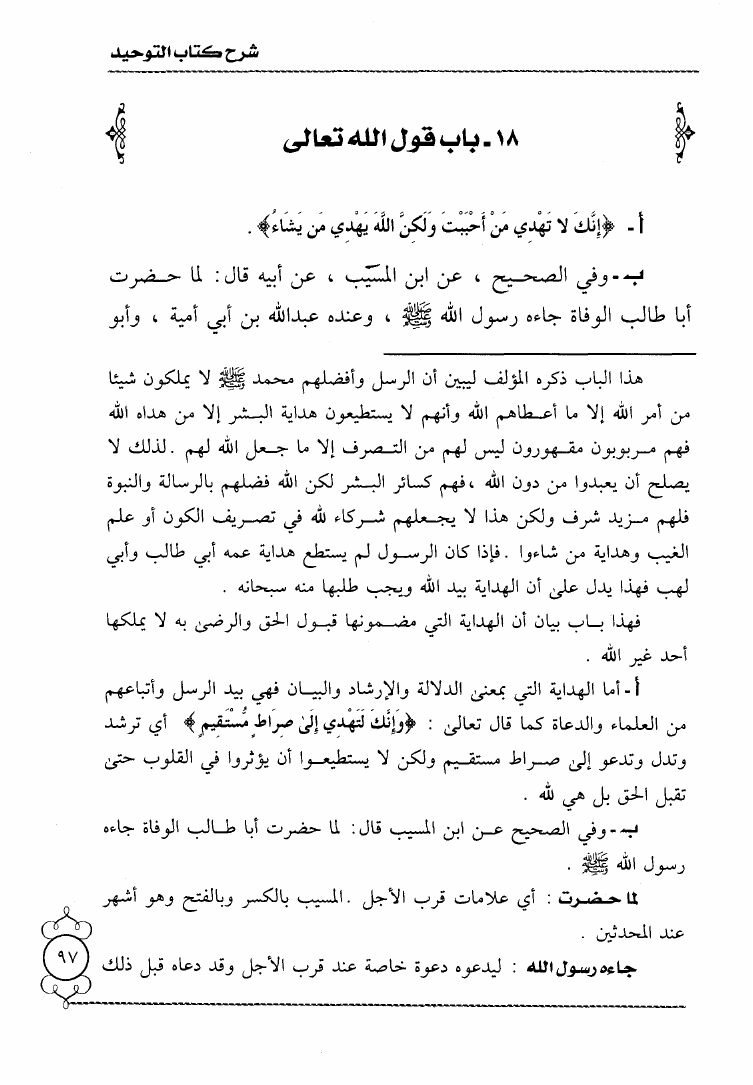 شرح كتاب التوحيد
١٨ـ باب قول الله تعالى
أ ـ ﴿إِنَّكَ لا تَهْدِي مَنْ أَحْبَبْتَ وَلَكِنَّ اللَّهَ يَهْدِي مَن يَشَاءُ﴾ .
ب ـ وفي الصحيح ، عن ابن المسيَّب ، عن أبيه قال: لما حضرت
أبا طالب الوفاة جاءه رسول الله ﷺ ، وعنده عبدالله بن أبي أمية ، وأبو
هذا الباب ذكره المؤلف ليبين أن الرسل وأفضلهم محمد ﷺ لا يملكون شيئا
من أمر الله إلا ما أعطاهم الله وأنهم لا يستطيعون هداية البشر إلا من هداه الله
فهم مربوبون مقهورون ليس لهم من التصرف إلا ما جعل الله لهم . لذلك لا
يصلح أن يعبدوا من دون الله ، فهم كسائر البشر لكن الله فضلهم بالرسالة والنبوة
فلهم مزيد شرف ولكن هذا لا يجعلهم شركاء لله في تصريف الكون أو علم
الغيب وهداية من شاءوا . فإذا كان الرسول لم يستطع هداية عمه أبي طالب وأبي
لهب فهذا يدل على أن الهداية بيد الله ويجب طلبها منه سبحانه .
فهذا باب بيان أن الهداية التي مضمونها قبول الحق والرضى به لا يملكها
أحد غير الله .
أ ـ أما الهداية التي بمعنى الدلالة والإرشاد والبيان فهي بيد الرسل وأتباعهم
من العلماء والدعاة كما قال تعالى : ﴿وَإِنَّكَ لَتَهْدِي إِلَى صِرَاطٍ مُّسْتَقِيمٍ﴾ أي ترشد
وتدل وتدعو إلى صراط مستقيم ولكن لا يستطيعوا أن يؤثروا في القلوب حتى
تقبل الحق بل هي لله .
ب ـ وفي الصحيح عن ابن المسيب قال: لما حضرت أبا طالب الوفاة جاءه
رسول الله ﷺ .
لما حضرت : أي علامات قرب الأجل . المسيب بالكسر وبالفتح وهو أشهر
عند المحدثين .
جاءه رسول الله : ليدعوه دعوة خاصة عند قرب الأجل وقد دعاه قبل ذلك
٩٧